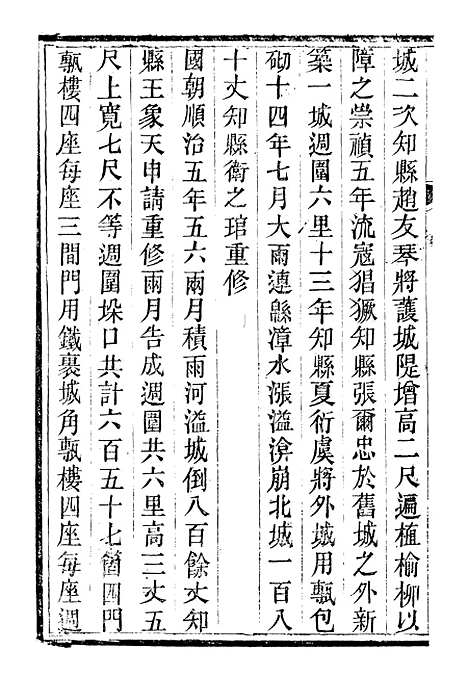 城二次知縣趙友琴將護城隄增高二尺遍植榆柳以
障之崇禎五年流寇猖獗知縣張爾忠於舊城之外新
築一城週圍六里十三年知縣夏衍虞將外城用甎包
砌十四年七月大雨連緜漳水漲溢渰崩北城一百八
十丈知縣衛之琯重修
國朝順治五年五六兩月積雨河溢城倒八百餘丈知
縣王象天申請重修兩月告成週圍共六里高三丈五
尺上寬七尺不等週圍垛口共計六百五十七箇四門
甎樓四座每座三間門用鐵裹城角甎樓四座每座週